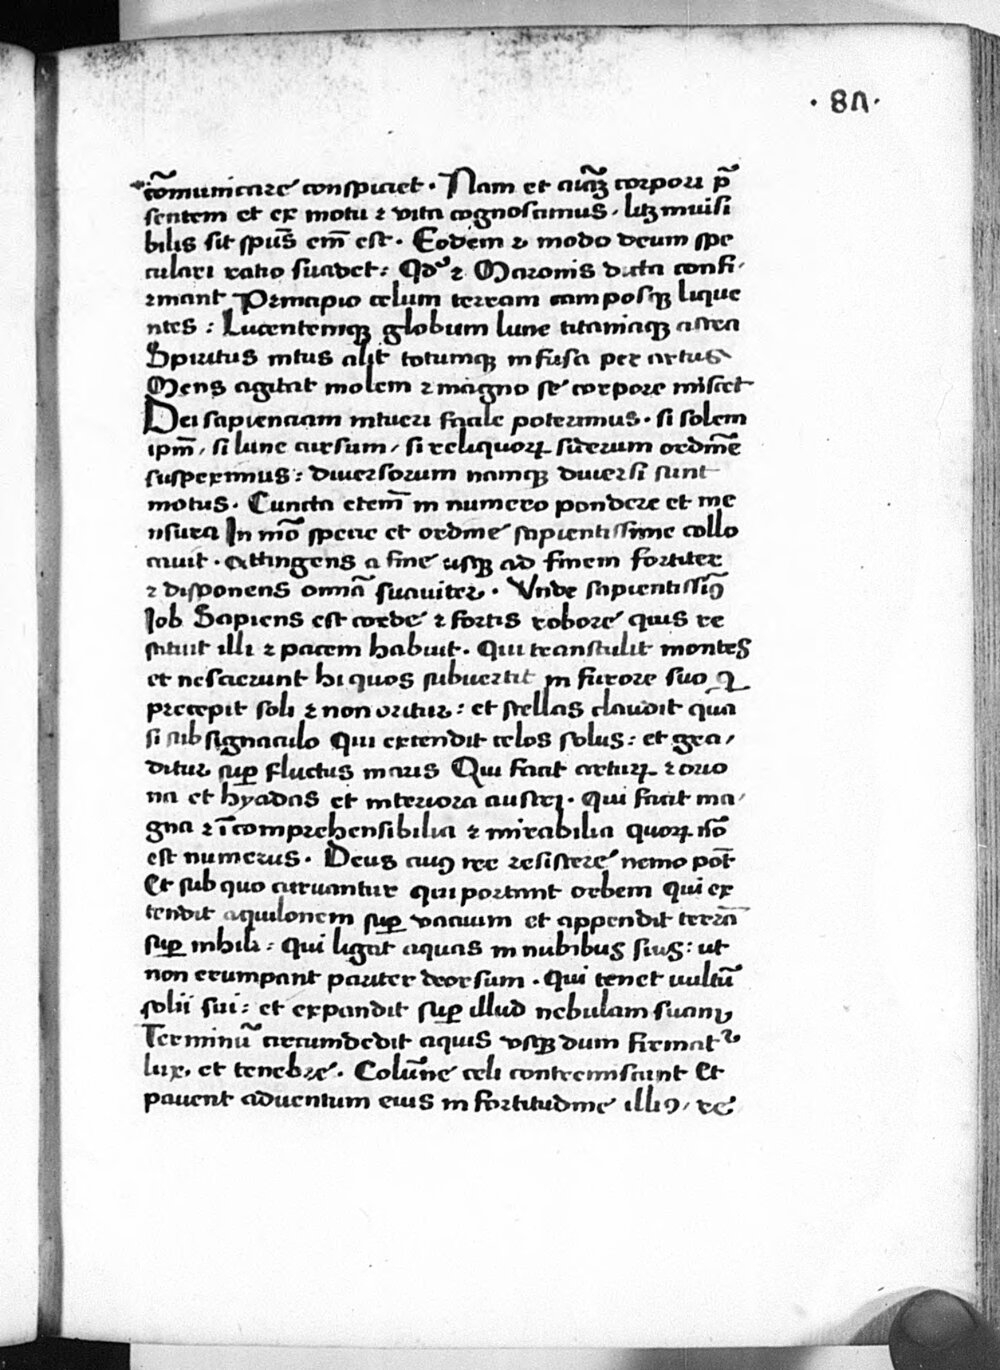 · 8Λ ·
cõmunicare conspiciet · Nam et aĩaꝫ corpori p̃
sentem et ex motu ⁊ vita cognoscimus · licꝫ invisi
bilis sit spũs em̃ est · Eodem ⁊ modo deum spe
culari ratio suadet : Qđ ⁊ Maronis dicta confi
rmant Principio celum terram camposqꝫ lique
ntes : Lucentemqꝫ globum lune titaniaqꝫ astra
Spiritus intus alit totumqꝫ infusa per artus
Mens agitat molem ⁊ magno se corpore miscet
Dei sapienciam intueri facile poterimus · si solem
ipm̃, si lune cursum, si reliquoꝝ siderum ordinẽ
suspexerimus : diversorum namqꝫ diversi sunt
motus · Cuncta etem̃ in numero pondere et me
nsura In mõ specie et ordine sapientissime collo
cauit · Attingens a fine usqꝫ ad finem fortiter
⁊ disponens omnã suaviter · Vnde sapientissiꝰ
Job Sapiens est corde ⁊ fortis robore quis re
stitit illi ⁊ pacem habuit · Qui transtulit montes
et nescierunt hi quos subvertit in furore suo Q
precepit soli ⁊ non oritur : et stellas claudit qua
si sub signaculo Qui extendit celos solus : et gra
ditur suꝑ fluctus maris Qui facit arturꝝ ⁊ orio
na et hyadas et interiora austri · Qui facit ma
gna ⁊ ĩcomprehensibilia ⁊ mirabilia quoꝝ nõ
est numerus · Deus cuiꝰ ire resistere nemo põt
Et sub quo curvantur qui portant orbem Qui ex
tendit aquilonem suꝑ vacuum et appendit terrã
suꝑ nihili : Qui ligat aquas in nubibus suis : ut
non erumpant pariter deorsum · Qui tenet vultũ
solii sui : et expandit suꝑ illud nebulam suam
Terminũ circumdedit aquis vsqꝫ dum firmatᷣ
lux et tenebre · Colũne celi contremiscunt Et
pavent adventum eius in fortitudine illiꝰ, re